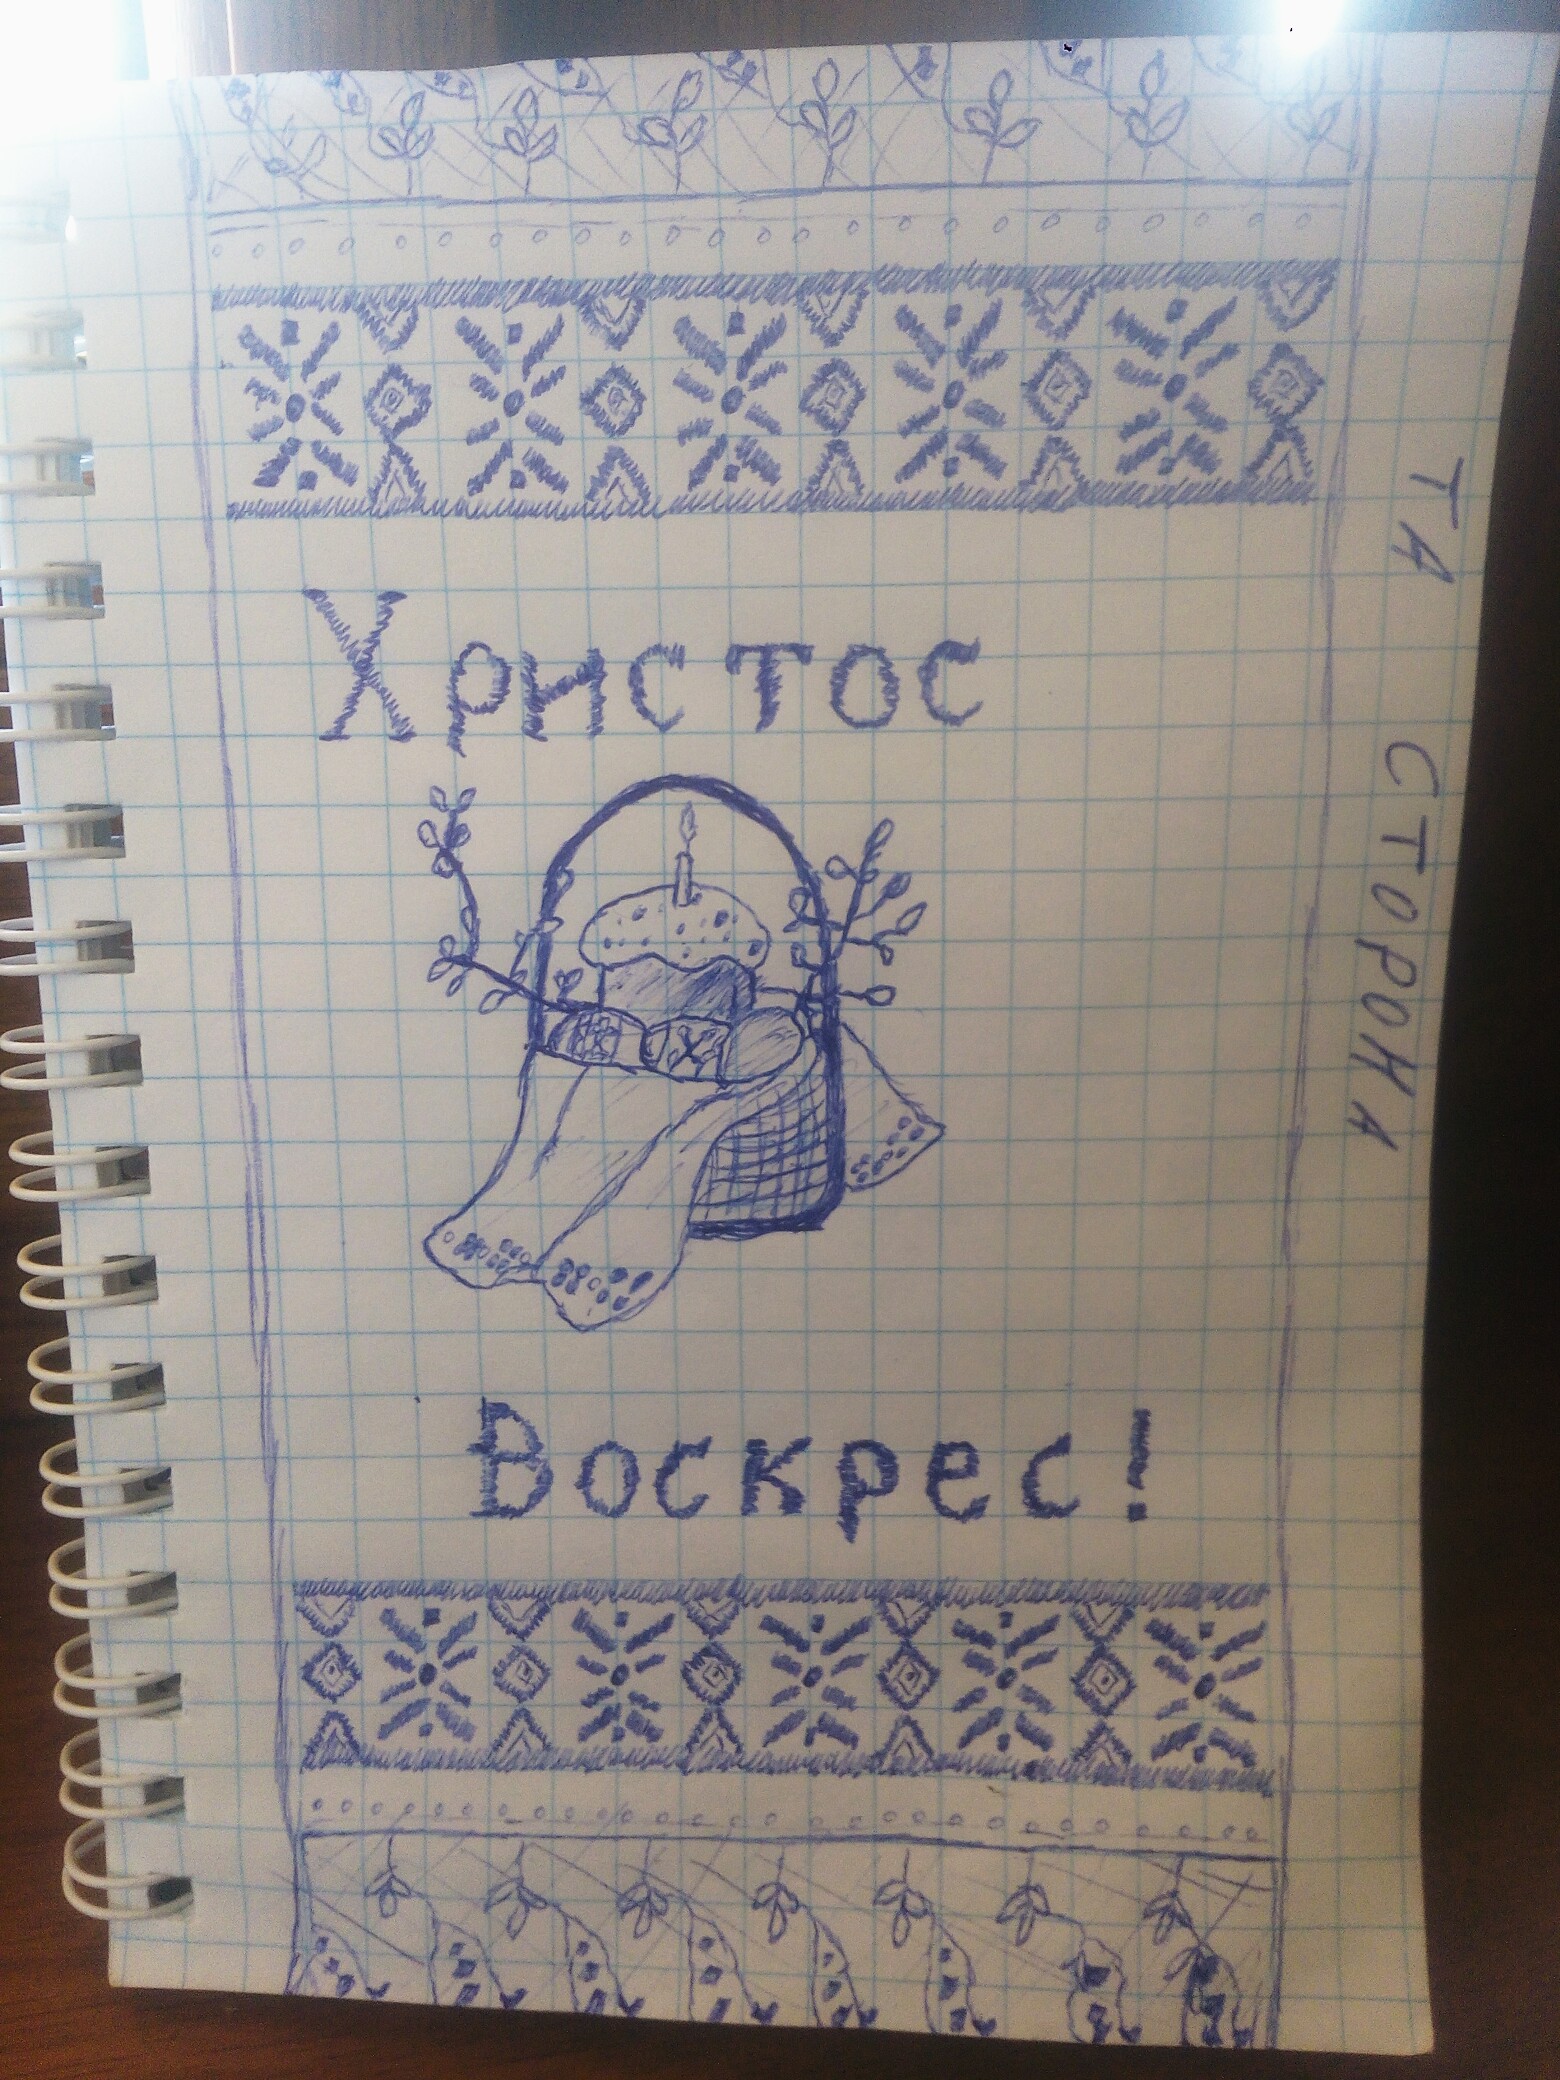 Христос
Воскрес!
ТА СТОРОНА